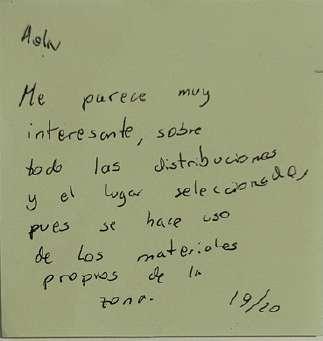 Me parece muy
interesante, sobre
todo las distribuciones
y el lugar seleccionado,
pues se hace uso
de los materiales
propios de la
zona.
19/20